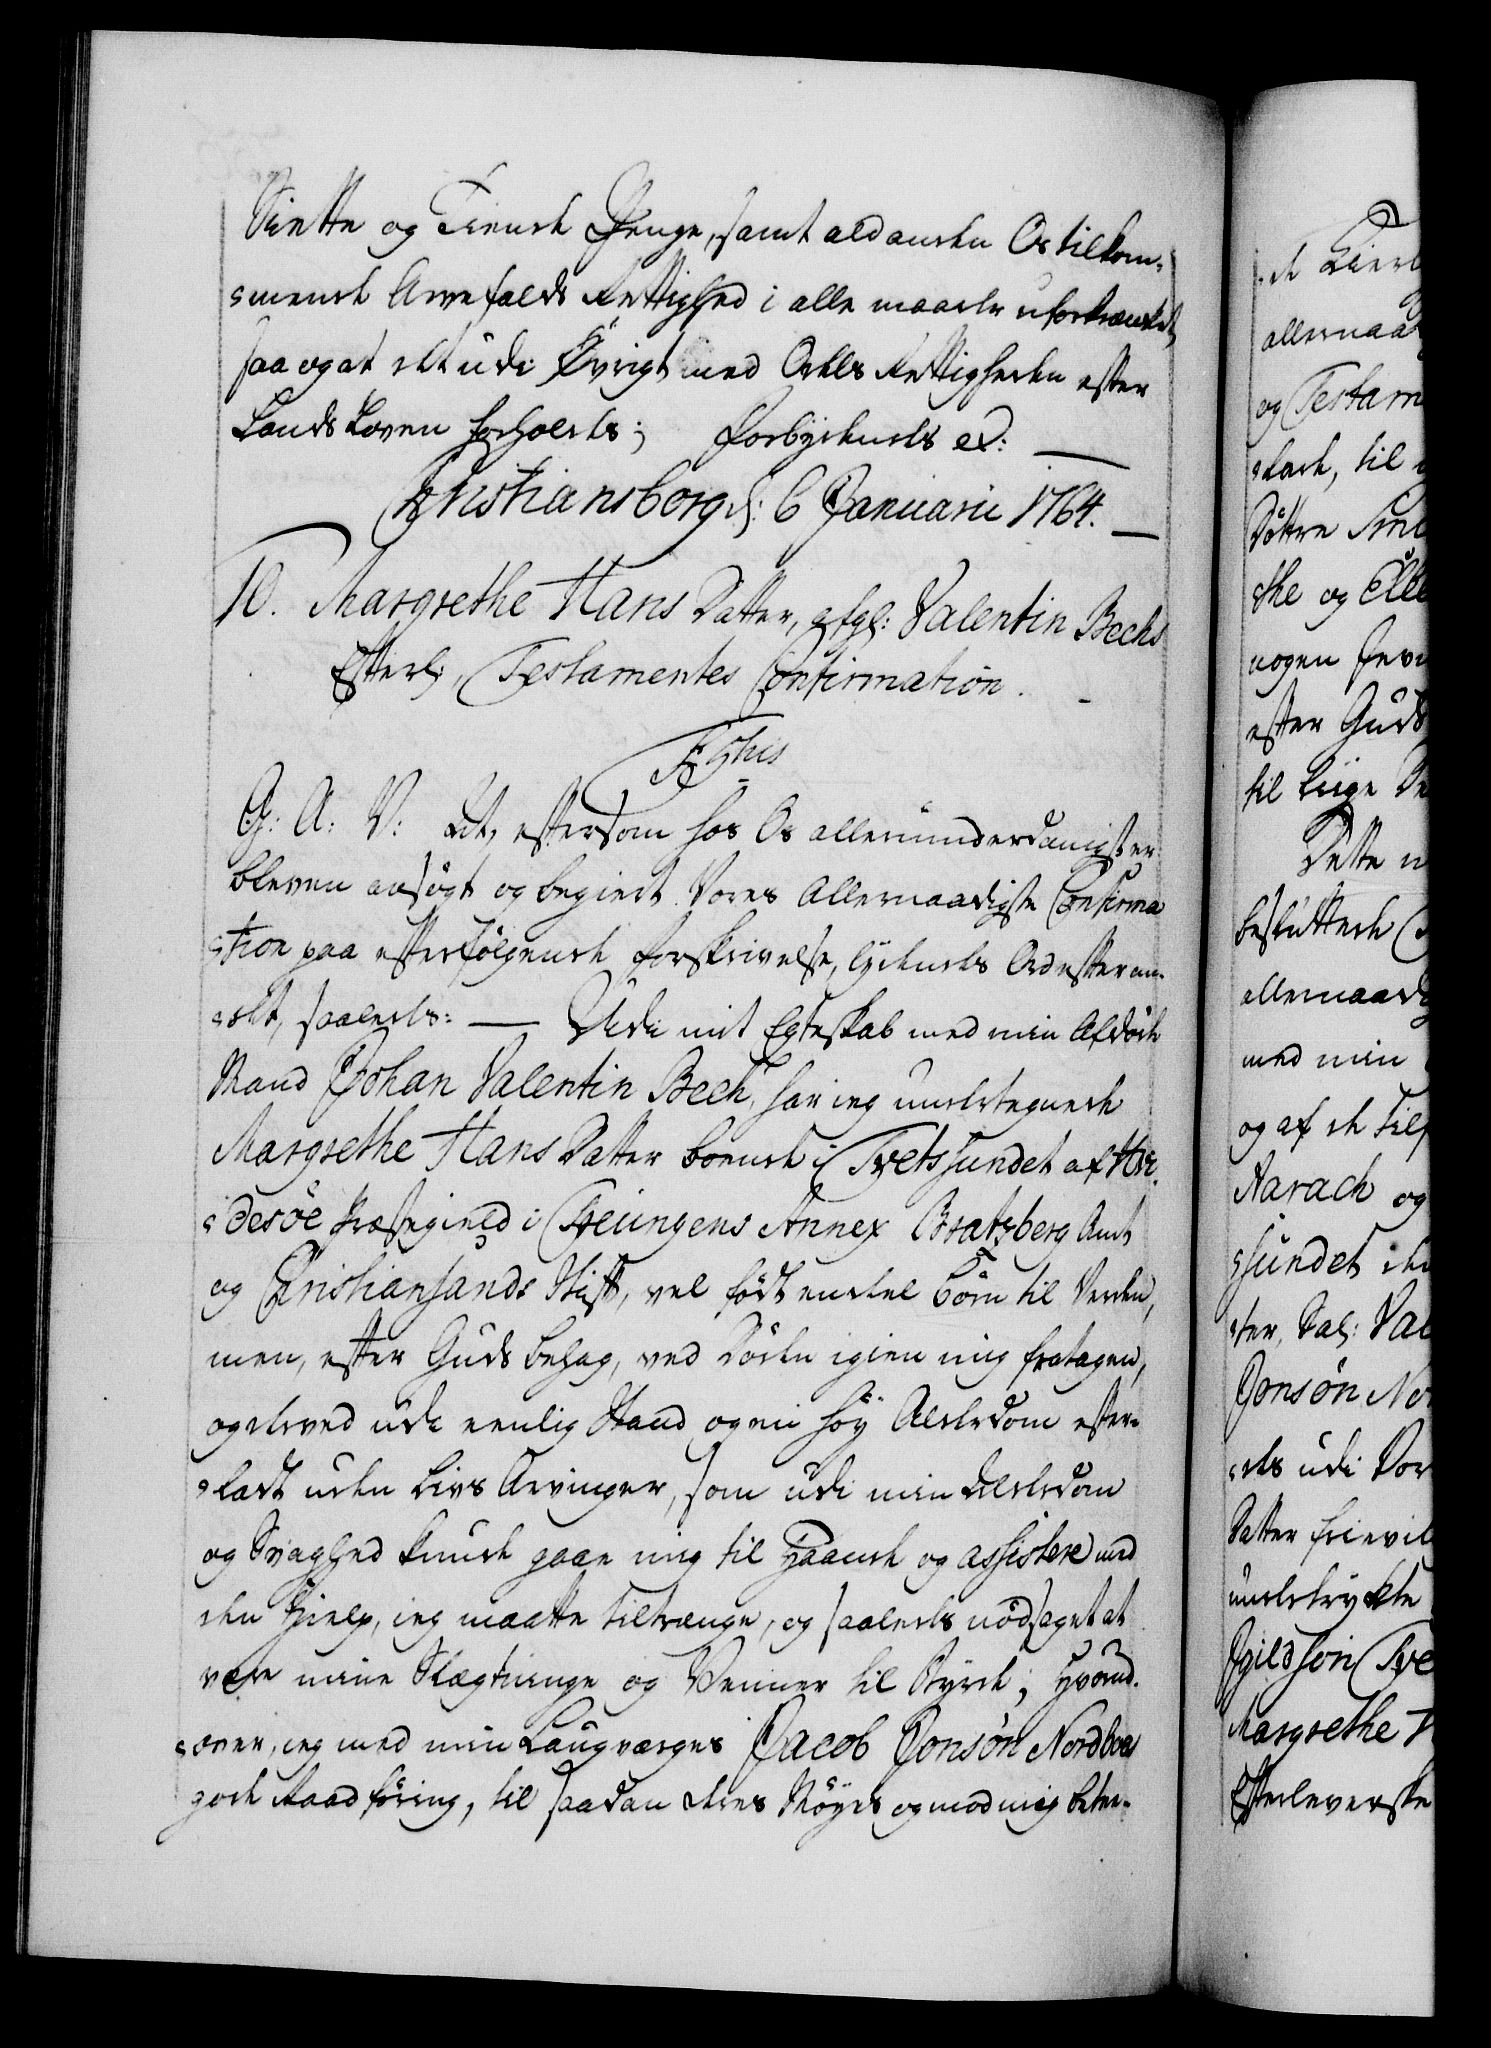 Siette og Tiende Penge, samt ald anden Os tilkom-
mende Arvefalds Rettighed i alle maader uforkrænket,
saa og at det udi Øvrigt med Odels Rettigheden efter
Lands Loven forholdes; Forbydendes &c: —
Christiansborg d: 6 Januarii 1764. —
10. Margrethe Hans Datter, afgl: Valentin Bechs
Efterl:, Testamentes Confirmation.
G: A: V: at, eftersom hos Os allerunderdanigst er
bleven ansøgt og begiert Vores Allernaadigste Confirma
tion paa efterfølgende Forskrivelse, lydendes Ord efter an-
det, saaledes: — Udi mit Egteskab med min Afdøde
Mand Johan Valentin Bech, har ieg underteignede
Margrethe Hans Datter boende i Tvetssundet af Hvi-
desøe Præstegield i Treungens Annex Bratsberg Amt
og Christiansands Stift, vel født endeel Børn til Verden,
men, efter Guds behag, ved Døden igien mig fratagen,
og derved udi eenlig Stand og en høy Alderdom efter-
ladt uden Livs Arvinger, som udi min Alderdom
og Svaghed kunde gaae mig til Haande og assistere med
den Hielp, ieg maatte tiltrænge, og saaledes nødsaget at
være mine Slægtninge og Venner til Byrde; Hvorud-
over, ieg med min Laugværges Jacob Jonsøn Nordboes
gode Raadføring, til saadan deres Møyes og mod mig beteе-
de Kierl
allernaa
og Testam
lade, til
Døttre
the og Elle
nogen
efter Guds
til Liige
Dette
besluttede
allernaadi
med min
og af de til
Aarach og
sundet
ter, Sal: Val
Jonsøn No
des udi
Datter frievil
undertrykte
Tve
Margrethe H
Efterleverske